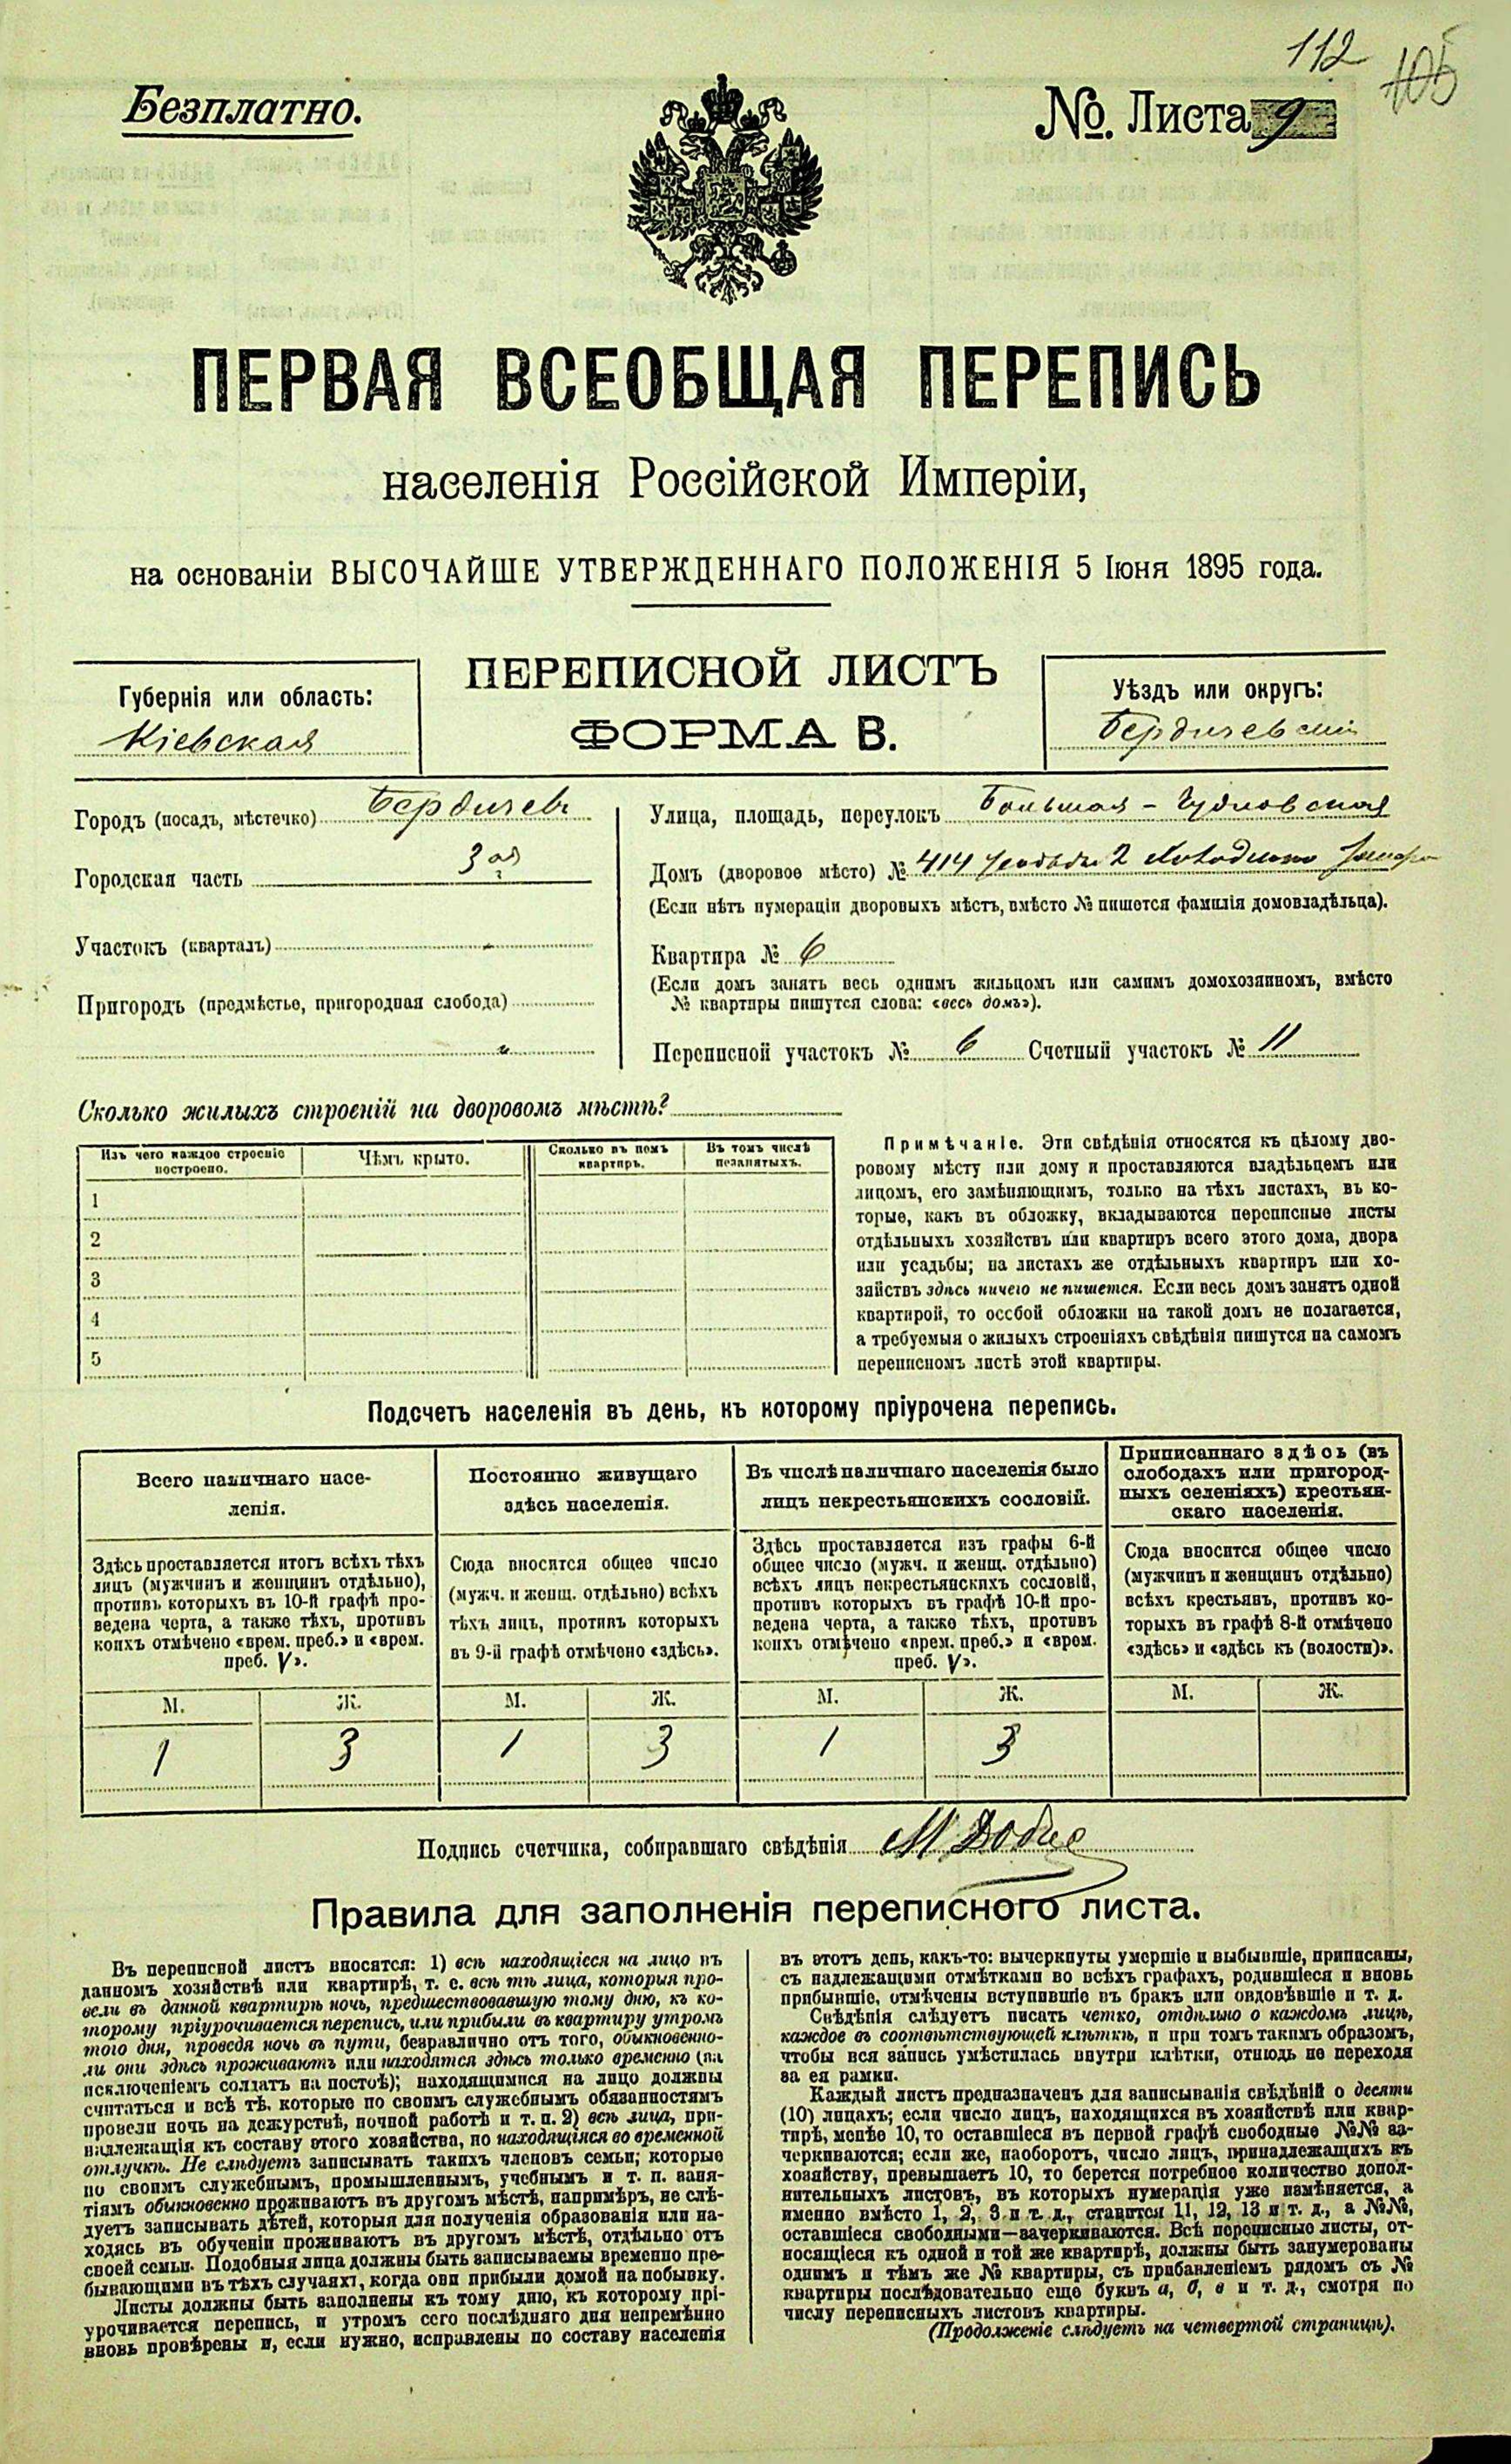 112
105
Безплатно.
№. Листа 9
ПЕРВАЯ ВСЕОБЩАЯ ПЕРЕПИСЬ
населенія Россійской Имперіи,
на основаніи ВЫСОЧАЙШЕ УТВЕРЖДЕННАГО ПОЛОЖЕНІЯ 5 Іюня 1895 года.
ПЕРЕПИСНОЙ ЛИСТЪ
ФОРМА В.
Губернія или область:
Кіевская
Уѣздъ или округъ:
Бердичевскій
Городъ (посадъ, мѣстечко) Бердичевъ
Городская часть 3ая
Участокъ (кварталъ) -
Пригородъ (предмѣстье, пригородная слобода)
"
Улица, площадь, переулокъ Большая - Чудновская
Домъ (дворовое мѣсто) № 414 усадьба 2
(Если нѣтъ нумераціи дворовыхъ мѣстъ, вмѣсто № пишется фамилія домовладѣльца).
Квартира № 6
(Если домъ занятъ весь однимъ жильцомъ или самимъ домохозяиномъ, вмѣсто
№ квартиры пишутся слова: «весь домъ»).
Переписной участокъ № 6 Счетный участокъ № 11
Сколько жилыхъ строеній на дворовомъ мѣстѣ?
Изъ чего каждое строеніе
построено.
Чѣмъ крыто.
Сколько въ немъ
квартиръ.
Въ томъ числѣ
незанятыхъ.
1
2
3
4
5
Примѣчаніе. Эти свѣдѣнія относятся къ цѣлому дво-
ровому мѣсту или дому и проставляются владѣльцемъ или
лицомъ, его замѣняющимъ, только на тѣхъ листахъ, въ ко-
торые, какъ въ обложку, вкладываются переписные листы
отдѣльныхъ хозяйствъ или квартиръ всего этого дома, двора
или усадьбы; на листахъ же отдѣльныхъ квартиръ или хо-
зяйствъ здѣсь ничего не пишется. Если весь домъ занятъ одной
квартирой, то особой обложки на такой домъ не полагается,
а требуемыя о жилыхъ строеніяхъ свѣдѣнія пишутся на самомъ
переписномъ листѣ этой квартиры.
Подсчетъ населенія въ день, къ которому пріурочена перепись.
Всего наличнаго насе-
ленія.
Здѣсь проставляется итогъ всѣхъ тѣхъ
лицъ (мужчинъ и женщинъ отдѣльно),
противъ которыхъ въ 10-й графѣ про-
ведена черта, а также тѣхъ, противъ
коихъ отмѣчено «врем. преб.» и «врем.
преб. V».
Постоянно живущаго
здѣсь населенія.
Сюда вносится общее число
(мужч. и женщ. отдѣльно) всѣхъ
тѣхъ лицъ, противъ которыхъ
въ 9-й графѣ отмѣчено «здѣсь».
Въ числѣ наличнаго населенія было
лицъ некрестьянскихъ сословій.
Здѣсь проставляется изъ графы 6-й
общее число (мужч. и женщ. отдѣльно)
всѣхъ лицъ некрестьянскихъ сословій,
противъ которыхъ въ графѣ 10-й про-
ведена черта, а также тѣхъ, противъ
коихъ отмѣчено «врем. преб.» и «врем.
преб. V».
Приписаннаго здѣсь (въ
слободахъ или пригород-
ныхъ селеніяхъ) крестьян-
скаго населенія.
Сюда вносится общее число
(мужчинъ и женщинъ отдѣльно)
всѣхъ крестьянъ, противъ ко-
торыхъ въ графѣ 8-й отмѣчено
«здѣсь» и «здѣсь къ (волости)».
М. Ж. М. Ж. М. Ж. М. Ж.
1 3 1 3 1 3
Подпись счетчика, собиравшаго свѣдѣнія
Правила для заполненія переписного листа.
Въ переписной листъ вносятся: 1) всѣ находящіеся на лицо въ
данномъ хозяйствѣ или квартирѣ, т. е. всѣ тѣ лица, которыя про-
вели въ данной квартирѣ ночь, предшествовавшую тому дню, къ ко-
торому пріурочивается перепись, или прибыли въ квартиру утромъ
того дня, проведя ночь въ пути, безразлично отъ того, обыкновенно-
ли они здѣсь проживаютъ или находятся здѣсь только временно (за
исключеніемъ солдатъ на постоѣ); находящимися на лицо должны
считаться и всѣ тѣ, которые по своимъ служебнымъ обязанностямъ
провели ночь на дежурствѣ, ночной работѣ и т. п. 2) всѣ лица, при-
надлежащія къ составу этого хозяйства, но находящіяся во временной
отлучкѣ. Не слѣдуетъ записывать такихъ членовъ семьи; которые
по своимъ служебнымъ, промышленнымъ, учебнымъ и т. п. заня-
тіямъ обыкновенно проживаютъ въ другомъ мѣстѣ, напримѣръ, не слѣ-
дуетъ записывать дѣтей, которыя для полученія образованія или на-
ходясь въ обученіи проживаютъ въ другомъ мѣстѣ, отдѣльно отъ
своей семьи. Подобныя лица должны быть записываемы временно пре-
бывающими въ тѣхъ случаяхъ, когда они прибыли домой на побывку.
Листы должны быть заполнены къ тому дню, къ которому прі-
урочивается перепись, и утромъ сего послѣдняго дня непремѣнно
вновь провѣрены и, если нужно, исправлены по составу населенія
въ этотъ день, какъ-то: вычеркнуты умершіе и выбывшіе, приписаны,
съ надлежащими отмѣтками во всѣхъ графахъ, родившіеся и вновь
прибывшіе, отмѣчены вступившіе въ бракъ или овдовѣвшіе и т. д.
Свѣдѣнія слѣдуетъ писать четко, отдѣльно о каждомъ лицѣ,
каждое въ соотвѣтствующей клѣткѣ, и при томъ такимъ образомъ,
чтобы вся запись умѣстилась внутри клѣтки, отнюдь не переходя
за ея рамки.
Каждый листъ предназначенъ для записыванія свѣдѣній о десяти
(10) лицахъ; если число лицъ, находящихся въ хозяйствѣ или квар-
тирѣ, менѣе 10, то оставшіеся въ первой графѣ свободные №№ за-
черкиваются; если же, наоборотъ, число лицъ, принадлежащихъ къ
хозяйству, превышаетъ 10, то берется потребное количество допол-
нительныхъ листовъ, въ которыхъ нумерація уже измѣняется, а
именно вмѣсто 1, 2, 3 и т. д., ставится 11, 12, 13 и т. д., а №№,
оставшіеся свободными—зачеркиваются. Всѣ переписные листы, от-
носящіеся къ одной и той же квартирѣ, должны быть занумерованы
однимъ и тѣмъ же № квартиры, съ прибавленіемъ рядомъ съ №
квартиры послѣдовательно еще буквъ а, б, в и т. д., смотря по
числу переписныхъ листовъ квартиры.
(Продолженіе слѣдуетъ на четвертой страницѣ).